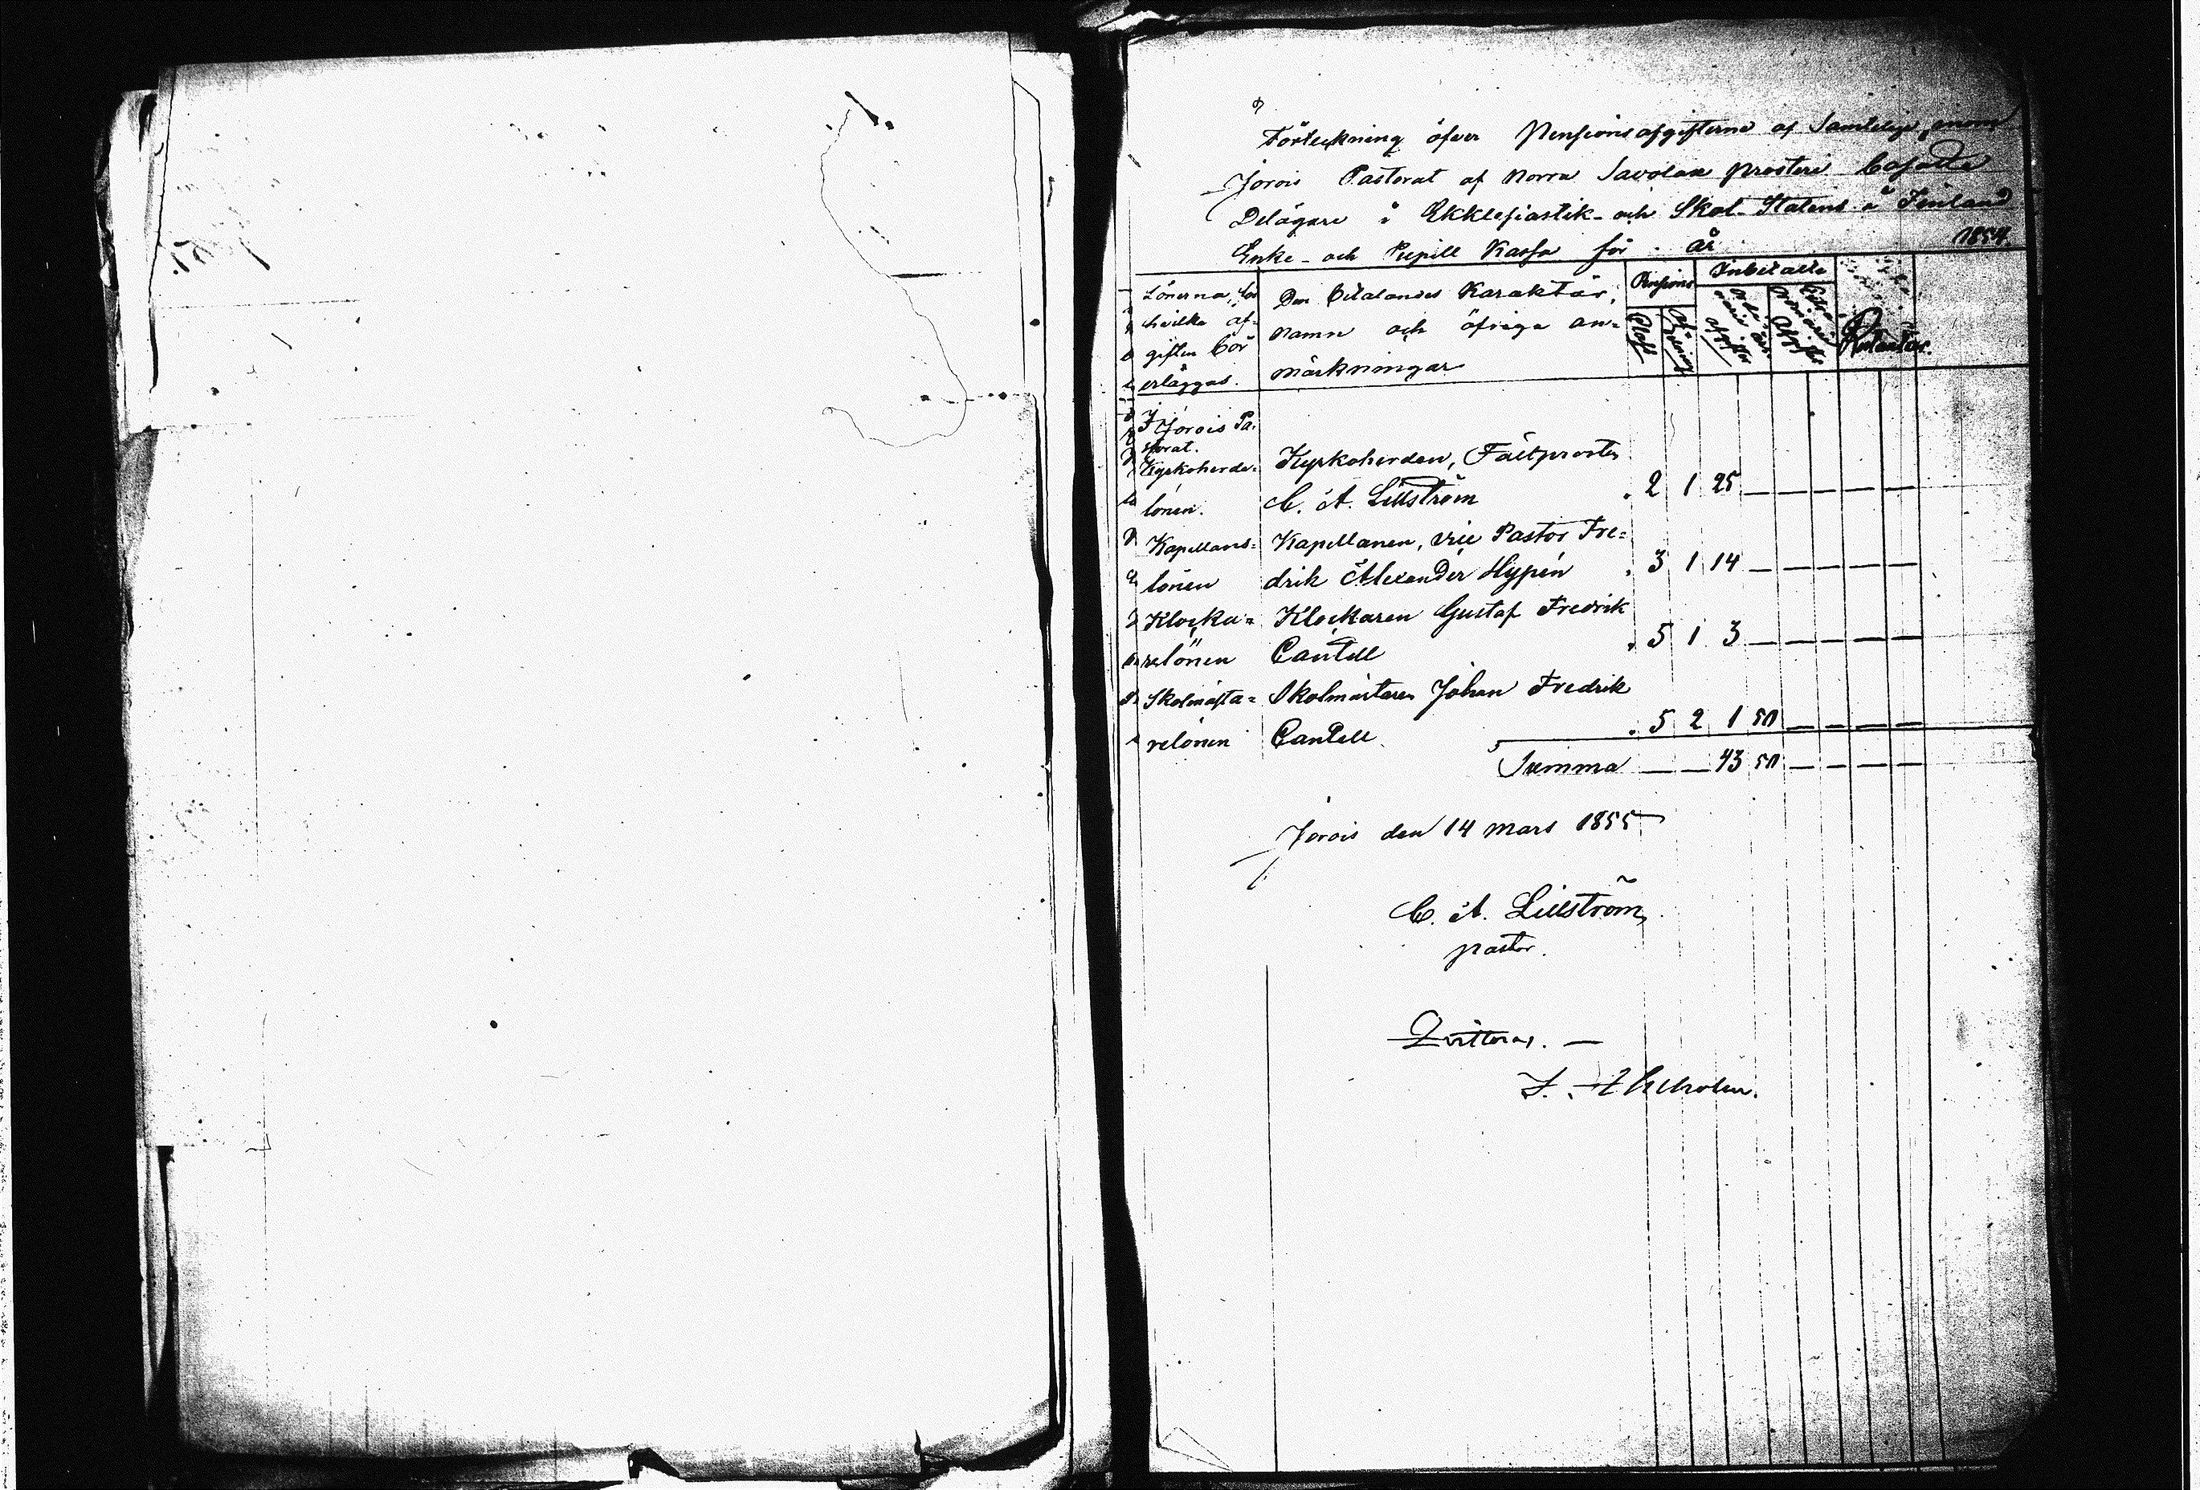 Förteckning öfver Pensionsafgifterne af Samtelige, inom
Jorois Pastorat af Norra Savolax Prosteri bosatte
Delägare i Ekklesiastik- och Skol-Statens i Finland
Enke- och Pupill Kassa för år 1854.
Lönerna, för
hvilka af-
giften bör
erläggas.
Den betalandes Karaktär,
namn och öfriga an-
märkningar
Pensions
Klass
Afdelning
Inbetalte
afgifter
afgifter
Restantier.
I Jorois Pa-
storat.
Kyrkoherde-
lönen.
Kyrkoherden, Fältprosten
C. A. Lillström . 2 1 25 — — — — —
Kapellans-
lönen
Kapellanen, vice Pastor Fre-
drik Alexander Hypén . 3 1 14 — — — — —
Klocka-
relönen
Klockaren Gustaf Fredrik
Cantell . 5 1 3 — — — — —
Skolmästa-
relönen
Skolmästaren Johan Fredrik
Cantell . 5 2 1 50 — — — —
Summa — — 43 50 — — — —
Jorois den 14 Mars 1855
C. A. Lillström,
pastor.
Qvitteras. —